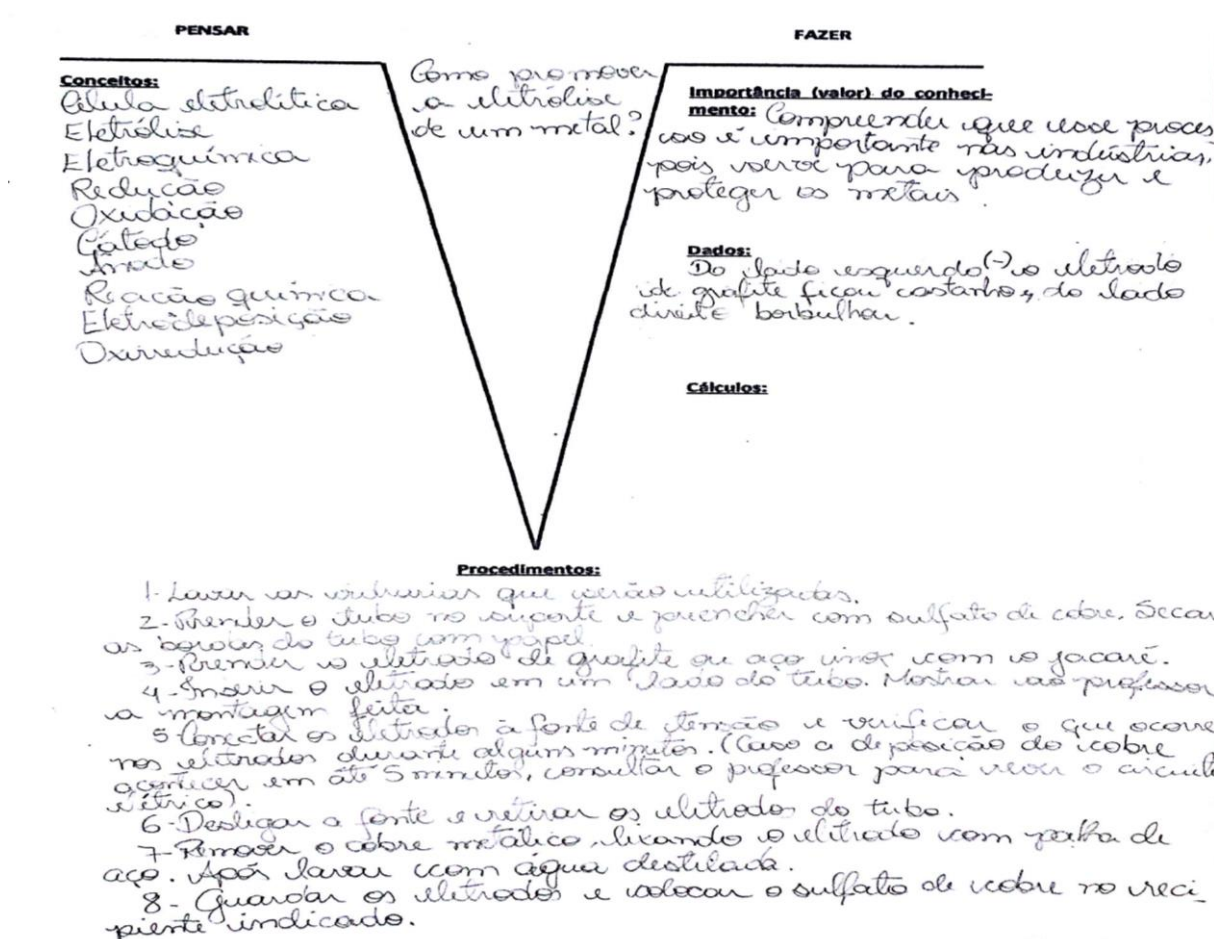 PENSAR
FAZER
Conceitos:
Célula eletrolítica
Eletrólise
Eletroquímica
Redução
Oxidação
Cátodo
Ânodo
Reação química
Eletrodeposição
Oxirredução
Como promover
a eletrólise
de um metal?
Importância (valor) do conheci-
mento: Compreender que esse proces
so é importante nas indústrias,
pois serve para produzir e
proteger os metais.
Dados:
Do lado esquerdo (-) o eletrodo
de grafite ficou castanho, do lado
direito borbulhou.
Cálculos:
Procedimentos:
1- Lavar as vidrarias que serão utilizadas.
2- Prender o tubo no suporte e preencher com sulfato de cobre. Secar
as bordas do tubo com papel.
3- Prender o eletrodo de grafite ou aço inox com o jacaré.
4- Inserir o eletrodo em um lado do tubo. Mostrar ao professor
a montagem feita.
5- Conectar os eletrodos à fonte de tensão e verificar o que ocorre
nos eletrodos durante alguns minutos. (Caso a deposição do cobre
acontecer em até 5 minutos, consultar o professor para rever o circuito
elétrico).
6- Desligar a fonte e retirar os eletrodos do tubo.
7- Remover o cobre metálico, lixando o eletrodo com palha de
aço. Após lavar com água destilada.
8- Guardar os eletrodos e colocar o sulfato de cobre no reci_
piente indicado.